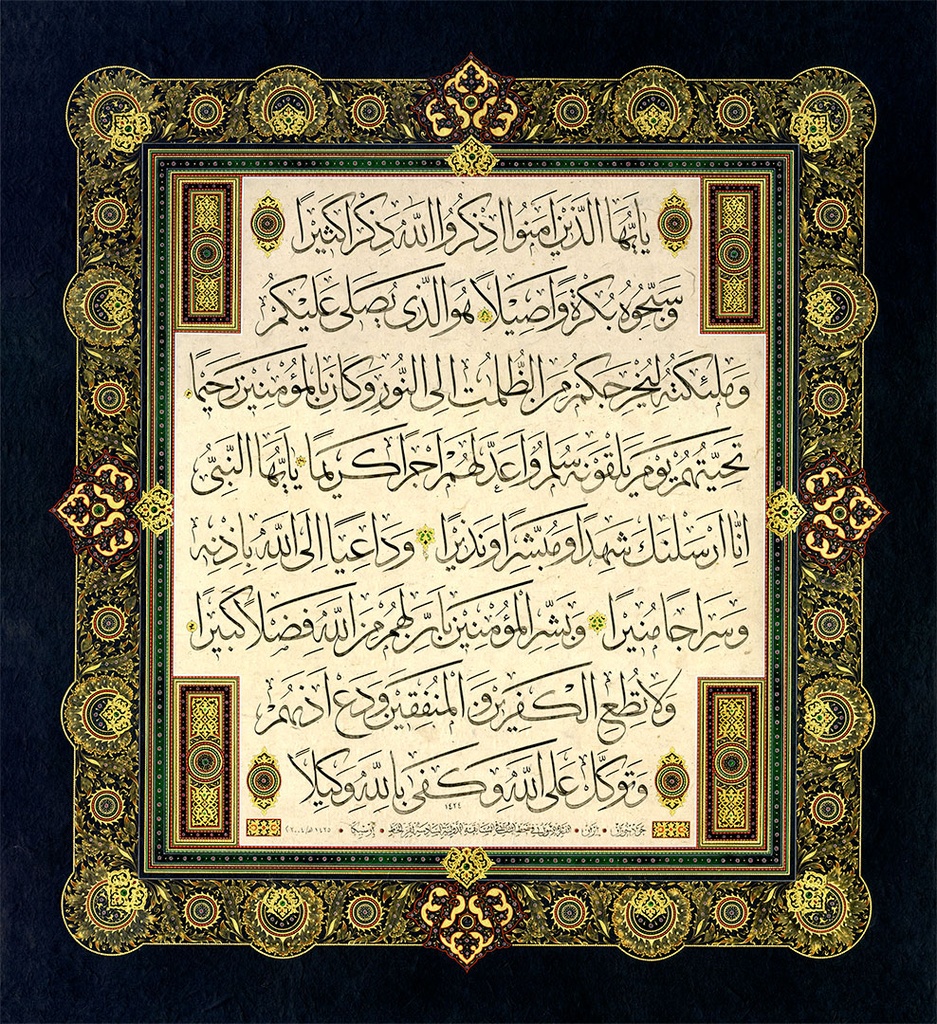 يا أيها الذين امنوا اذكروا الله ذكرا كثيرا
وسبحوه بكرة واصيلا هو الذى يصلى عليكم
وملئكته ليخرجكم من الظلمت الى النور وكان بالمؤمنين رحيما
تحيتهم يوم يلقونه سلم واعد لهم اجرا كريما يا أيها النبى
انا ارسلنك شهدا ومبشرا ونذيرا وداعيا الى الله باذنه
وسراجا منيرا وبشر المؤمنين بان لهم من الله فضلا كبيرا
ولا تطع الكفرين والمنفقين ودع اذىهم
وتوكل على الله وكفى بالله وكيلا
١٤٢٤